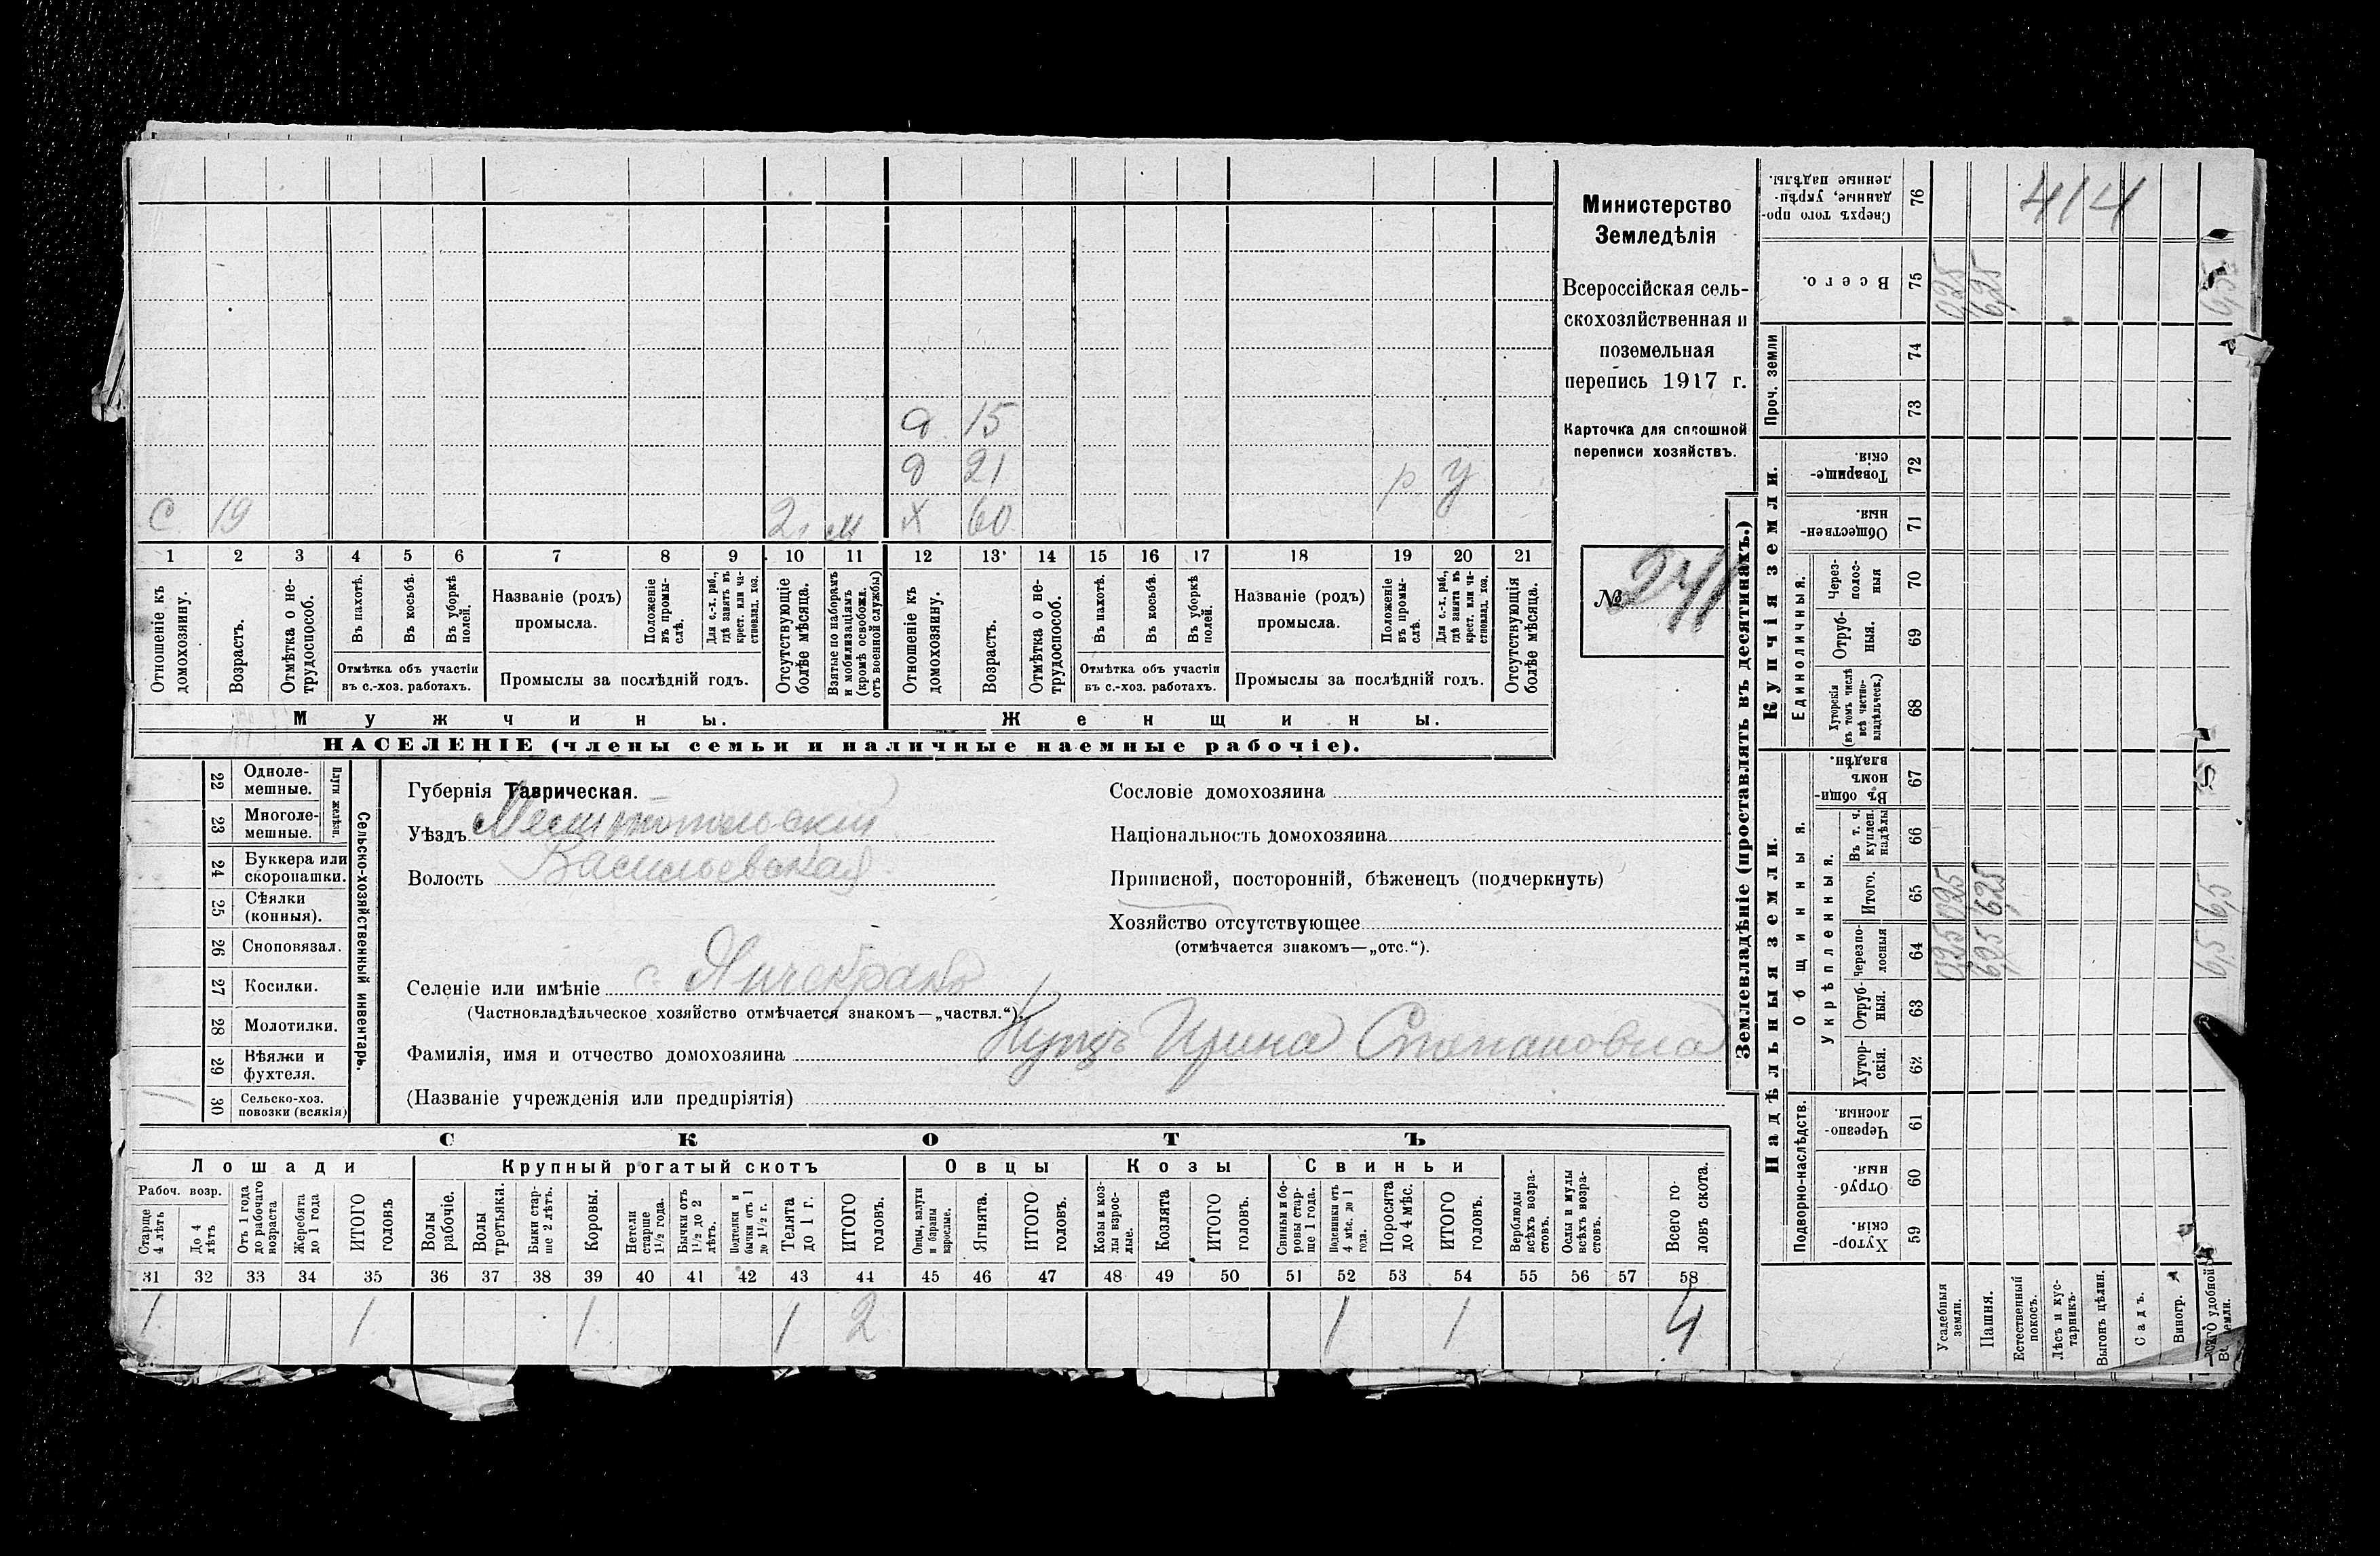 Министерство
Земледѣлія
Всероссійская сель-
скохозяйственная и
поземельная
перепись 1917 г.
Карточка для сплошной
переписи хозяйствъ.
№ 241
а 15
д 21
р у
с 19 2, м х 60
1 2 3 4 5 6 7 8 9 10 11 12 13 14 15 16 17 18 19 20 21
Отношеніе къ домохозяину.
Возрастъ.
Отмѣтка о не-трудоспособ.
Въ пахотѣ.
Въ косьбѣ.
Въ уборкѣ полей.
Отмѣтка объ участіи
въ с.-хоз. работахъ.
Названіе (родъ)
промысла.
Положеніе въ промы-слѣ.
Для с.-х. раб., гдѣ занятъ въ крест. или ча-стновлад. хоз.
Промыслы за послѣдній годъ.
Отсутствующіе болѣе мѣсяца.
Взятые по наборамъ и мобилизаціямъ (кромѣ освобожд. отъ военной службы)
Отношеніе къ домохозяину.
Возрастъ.
Отмѣтка о не-трудоспособ.
Въ пахотѣ.
Въ косьбѣ.
Въ уборкѣ полей.
Отмѣтка объ участіи
въ с.-хоз. работахъ.
Названіе (родъ)
промысла.
Положеніе въ промы-слѣ.
Для с.-х. раб., гдѣ занята въ крест. или ча-стновлад. хоз.
Промыслы за послѣдній годъ.
Отсутствующія болѣе мѣсяца.
Мужчины. Женщины.
НАСЕЛЕНІЕ (члены семьи и наличные наемные рабочіе).
22 Одноле-мешные.
23 Многоле-мешные.
Плуги желѣзн.
24 Буккера или скоропашки.
25 Сѣялки (конныя).
26 Сноповязал.
27 Косилки.
28 Молотилки.
29 Вѣялки и фухтеля.
30 Сельско-хоз. повозки (всякія)
Сельско-хозяйственный инвентарь.
Губернія Таврическая.
Уѣздъ Мелитопольскій
Волость Васильевская
Сословіе домохозяина
Національность домохозяина
Приписной, посторонній, бѣженецъ (подчеркнуть)
Хозяйство отсутствующее
(отмѣчается знакомъ—„отс.“).
Селеніе или имѣніе с. Янчекракъ
(Частновладѣльческое хозяйство отмѣчается знакомъ—„частвл.“).
Фамилія, имя и отчество домохозяина Куцъ Ирина Степановна
(Названіе учрежденія или предпріятія)
СКОТЪ
Лошади Крупный рогатый скотъ Овцы Козы Свиньи
Рабоч. возр.
Старще 4 лѣтъ
До 4 лѣтъ
Отъ 1 года до рабочаго возраста
Жеребята до 1 года
ИТОГО головъ
Волы рабочіе.
Волы третьяки.
Быки стар-ше 2 лѣтъ.
Коровы.
Нетели старше 1½ года.
Бычки отъ 1½ до 2 лѣтъ.
Нетелки и бычки отъ 1 до 1½ г.
Телята до 1 г.
ИТОГО головъ.
Овцы, валухи и бараны взрослые.
Ягнята.
ИТОГО головъ.
Козы и коз-лы взрос-лые.
Козлята
ИТОГО головъ.
Свиньи и бо-ровы стар-ше 1 года.
Подсвинки отъ 4 мѣс. до 1 года.
Поросята до 4 мѣс.
ИТОГО головъ.
Верблюды всѣхъ возра-стовъ.
Ослы и мулы всѣхъ возра-стовъ.
Всего го-ловъ скота.
31 32 33 34 35 36 37 38 39 40 41 42 43 44 45 46 47 48 49 50 51 52 53 54 55 56 57 58
1 1 1 1 2 1 1 4
Землевладѣніе (проставлять въ десятинахъ.)
Надѣльныя земли. Купчія земли. Проч. земли
Подворно-наслѣдств.
Общинныя.
Укрѣпленныя.
Единоличныя.
Хутор-скія. 59
Отруб-ныя. 60
Черезпо-лосныя. 61
Хутор-скія. 62
Отруб-ныя. 63
Черезпо-лосныя 64
Итого. 65
Въ т. ч. куплен. надѣлы 66
Въ общин-номъ владѣн. 67
Хуторскія (въ томъ числѣ всѣ частно-владѣльческ.) 68
Отруб-ныя. 69
Через-полос-ныя 70
Обществен-ныя. 71
Товарище-скія. 72
73
74
Всего. 75
Сверхъ того про-данные, укрѣп-ленные надѣлы. 76
Усадебныя земли. 0,25 0,25 0,25
Пашня. 6,25 6,25 6,25
Естественный покосъ.
Лѣсъ и кус-тарникъ.
Выгонъ цѣлин.
Садъ.
Виногр.
Всего удобной земли. 6,5 6,5 6,5
414